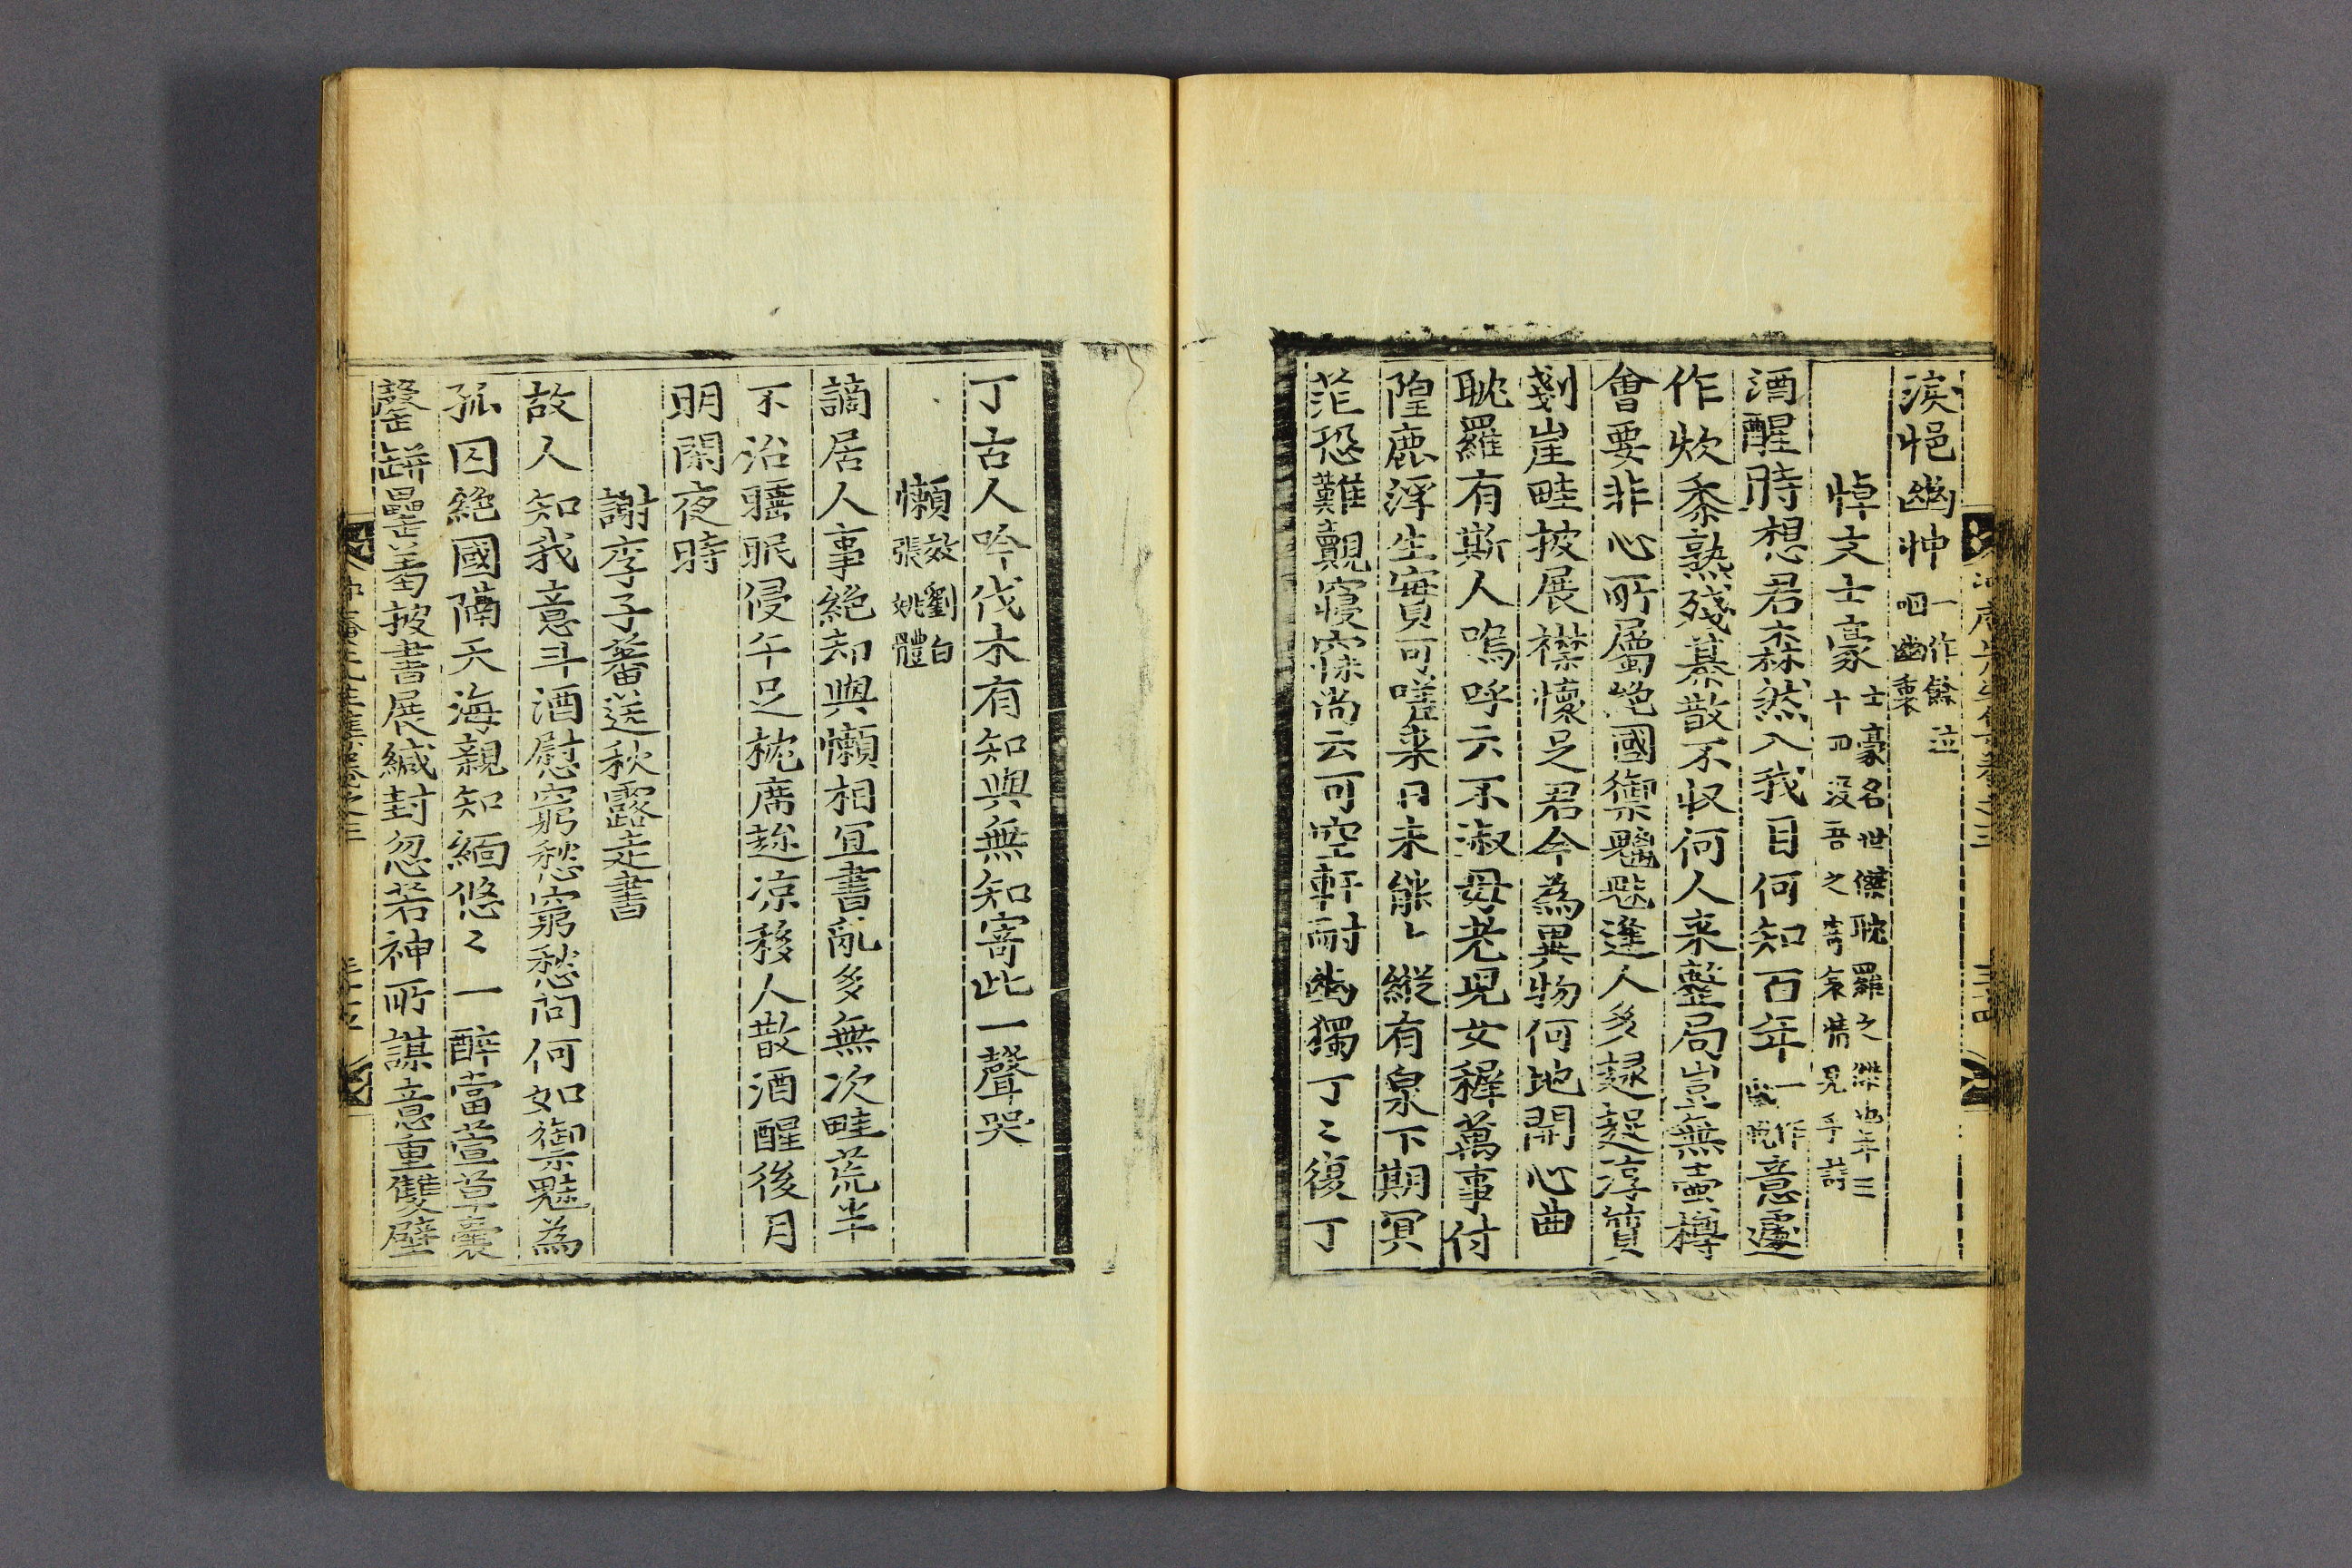 淚悒幽忡 一作餘泣
咽幽裏
悼文士豪 士豪名世傑耽羅之傑也年三
十四沒吾之寄哀情見乎詩
酒醒時想君森然入我目何知百年一作意遽
作炊黍熟殘棊散不收何人来整局豈無壺樽
會要非心所屬絶國禦魑魅逢人多謬誤淳質
剗崖畦披展襟懷足君今為異物何地開心曲
耽羅有斯人嗚呼云不淑毋老児女穉萬事付
隍鹿浮生寔可嗟来日未能卜縦有泉下期冥
茫恐難覿寤寐尚云可空軒耐幽獨丁〻復丁
丁古人吟伐木有知與無知寄此一聲哭
懶 效劉白
張姚體
謫居人事絶却與懶相冝書亂多無次畦荒半
不治瞌眠侵午足枕席趂凉移人散酒醒後月
明閑夜時
謝李子蕃送秋露走書
故人知我意斗酒慰窮愁窮愁問何如御禦魅為
孤囚絶國隔天海親知緬悠〻一醉當萱草囊
罄缾罍羞披書展緘封忽若神所謀意重雙璧